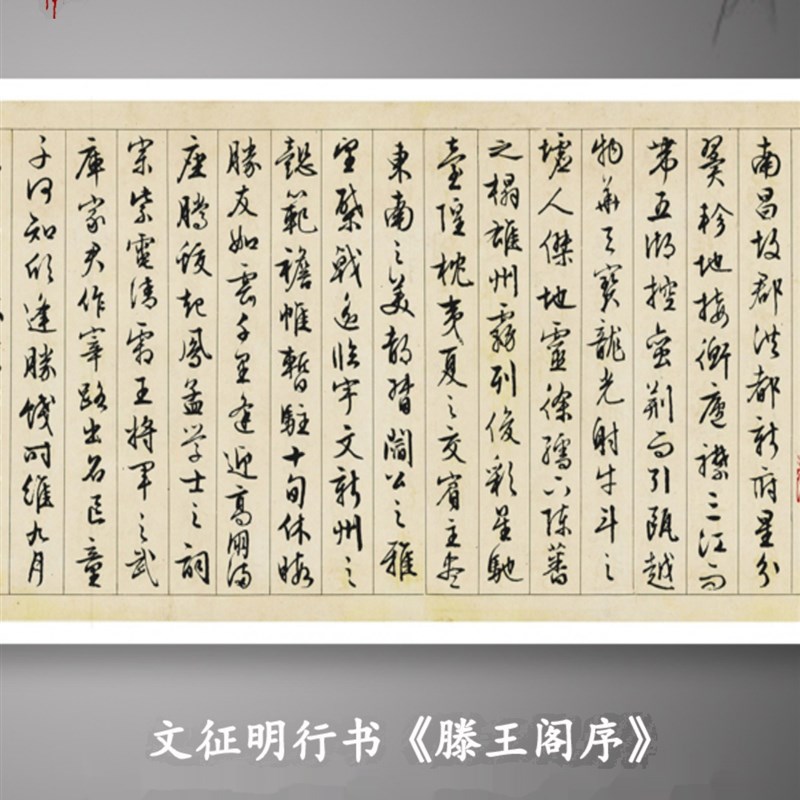 南昌故郡洪都新府星分
翼軫地接衡廬襟三江而
帶五湖控蠻荆而引甌越
物華天寶龍光射牛斗之
墟人傑地靈徐孺下陳蕃
之榻雄州霧列俊彩星馳
臺隍枕夷夏之交賓主盡
東南之美都督閻公之雅
望棨戟遥臨宇文新州之
懿範襜帷暫駐十旬休暇
勝友如雲千里逢迎高朋滿
座騰蛟起鳳孟学士之詞
宗紫電清霜王將軍之武
庫家君作宰路出名區童
子何知欣逢勝餞时維九月
文征明行书《滕王阁序》